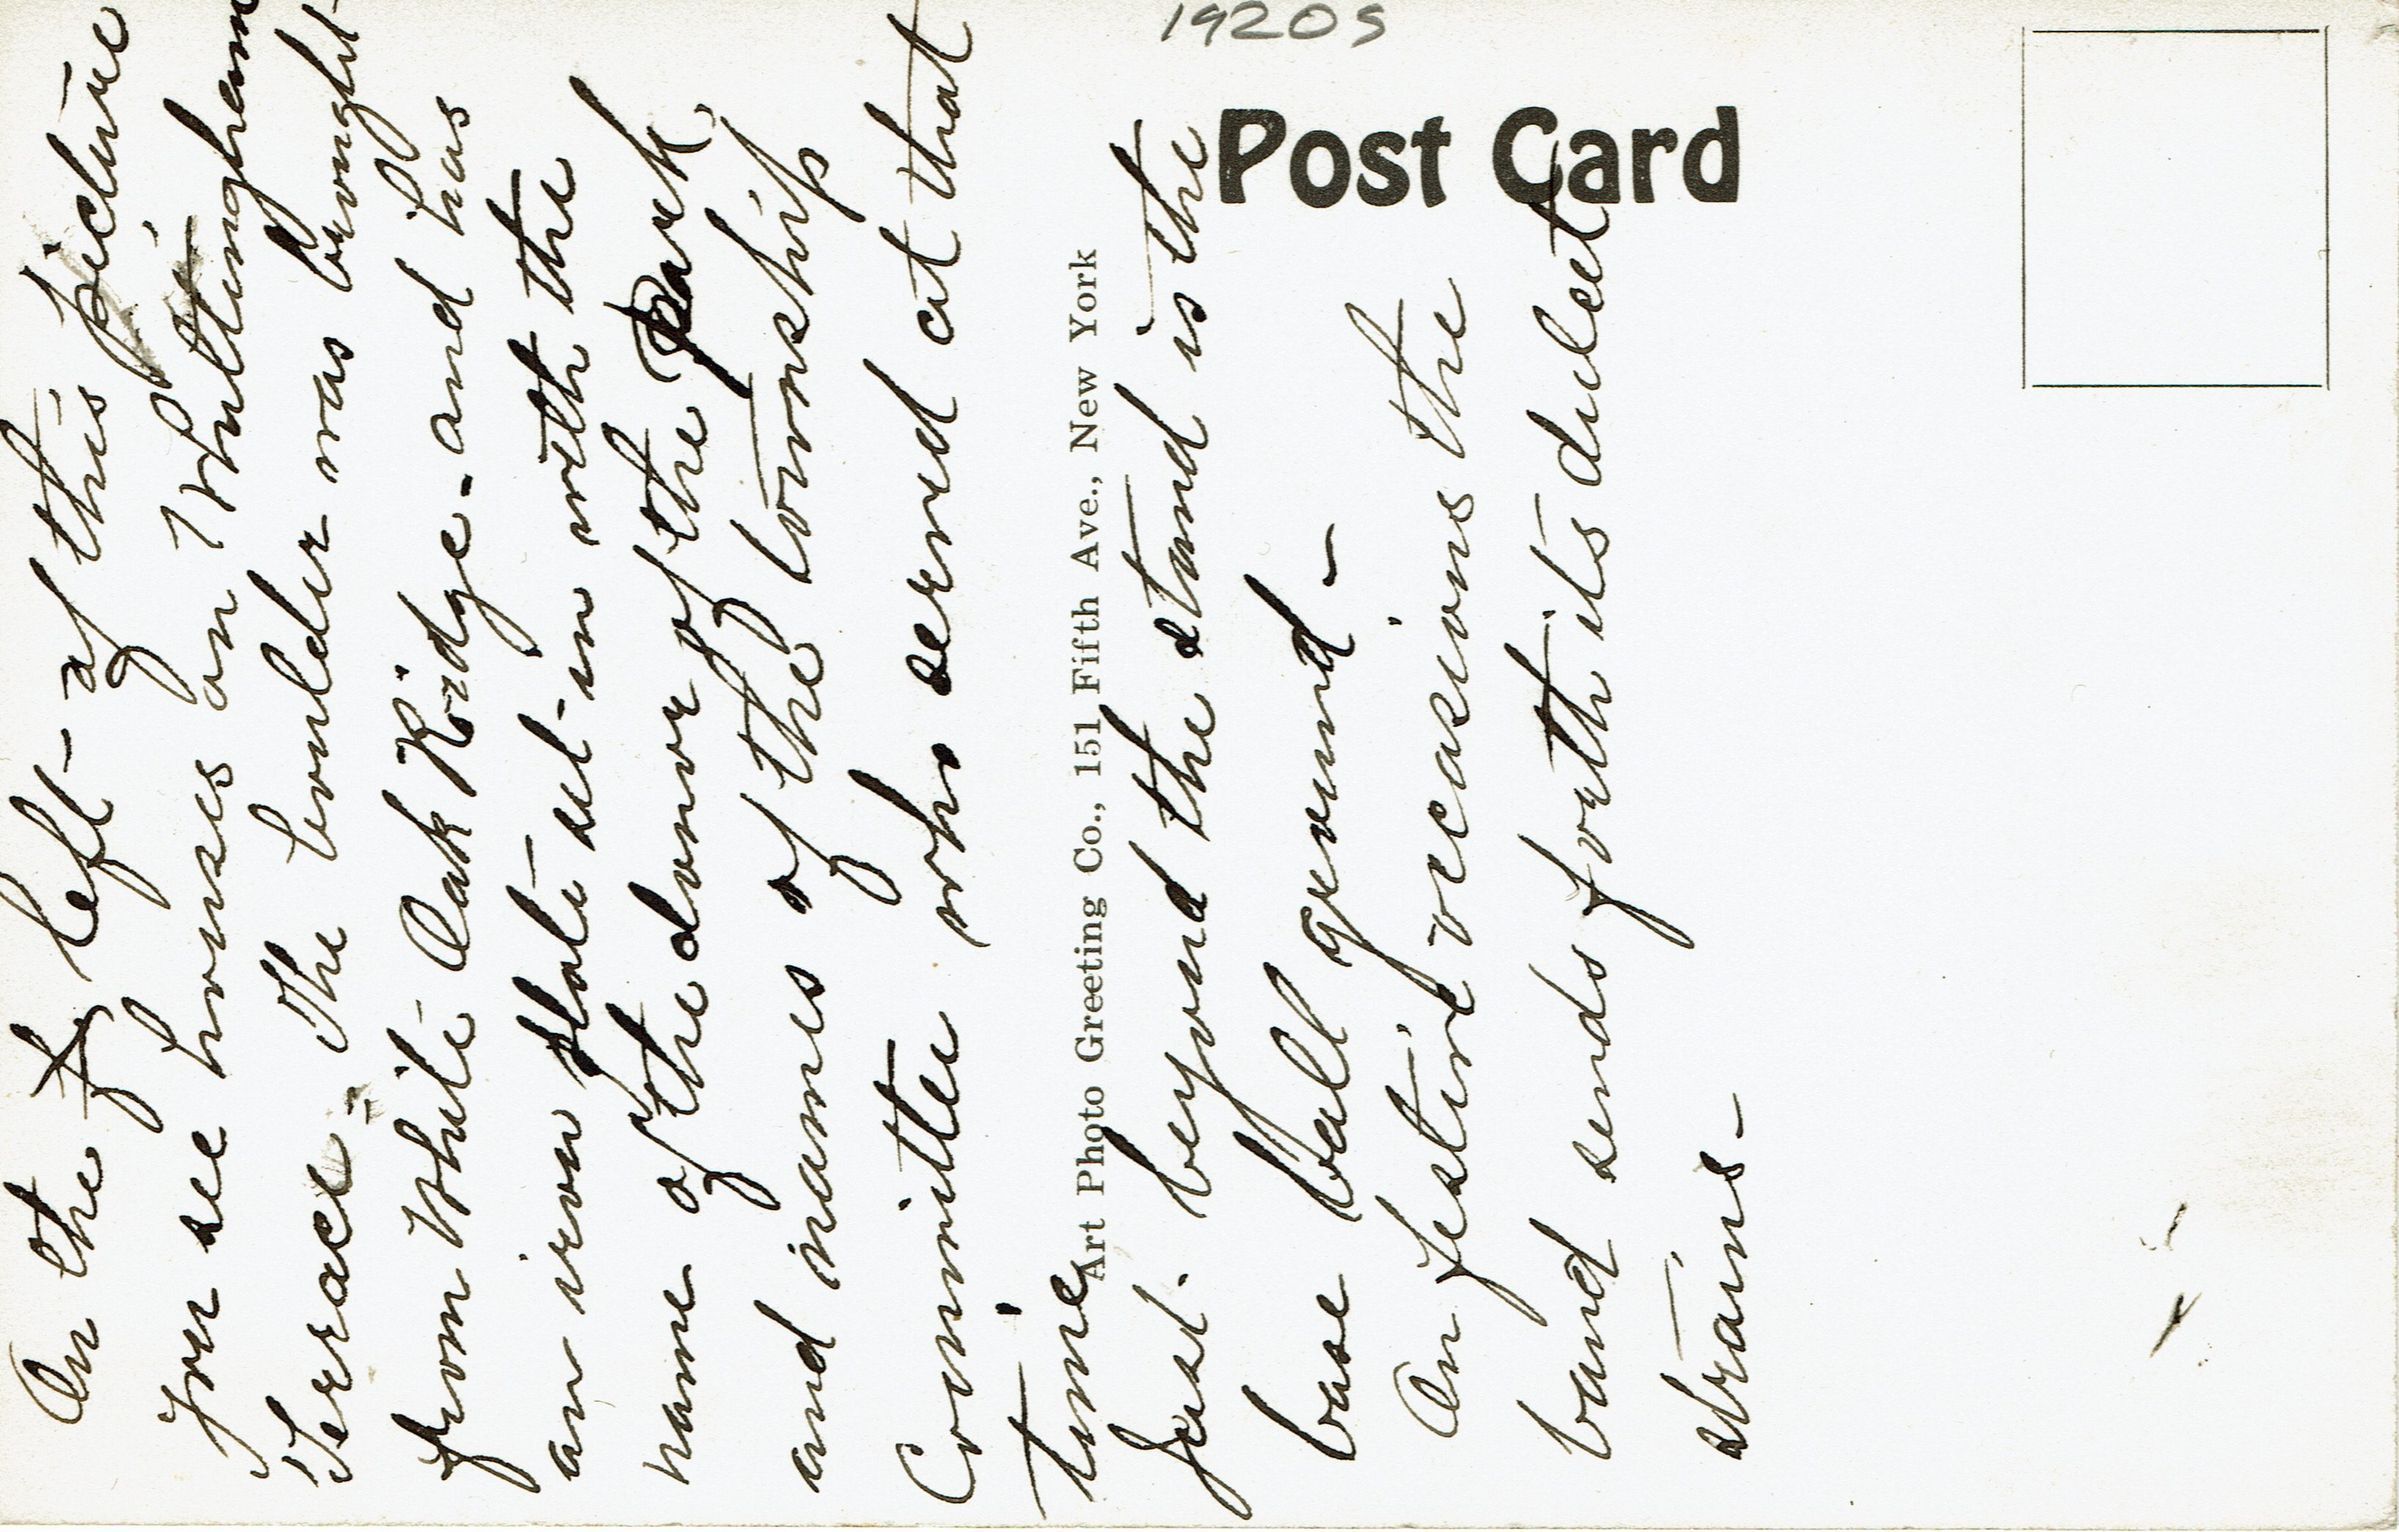 1920s
Post Card
Art Photo Greeting Co., 151 Fifth Ave., New York
On the left of this picture
you see houses on Whittingham
Terrace - The boulder was brought
from White Oak Ridge - and has
an iron plate set in with the
name of the donor of the Park,
and names of the township
Committee who served at that
time
Just beyond the stand is the
base ball ground -
On festive occasions the
band sends forth its dulcet
strains -